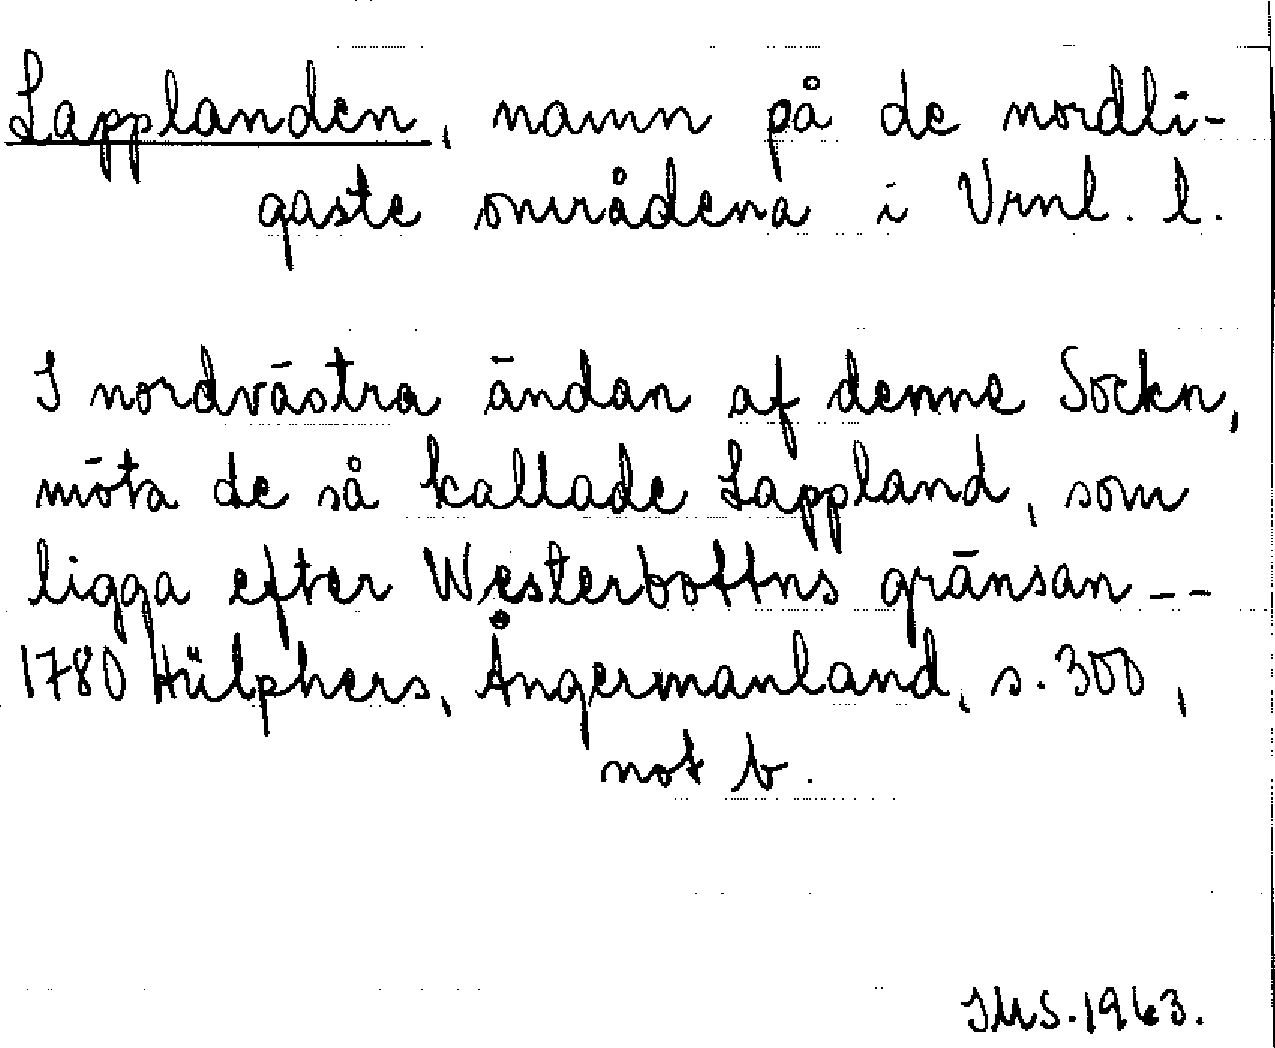 Lapplanden, namn på de nordli-
gaste områdena i Vrml. l.
I nordvästra ändan af denne Sockn,
möta de så kallade Lappland, som
ligga efter Westerbottns gränsan --
1780 Hülphers, Ångermanland, s. 300,
not b.
IMS. 1963.